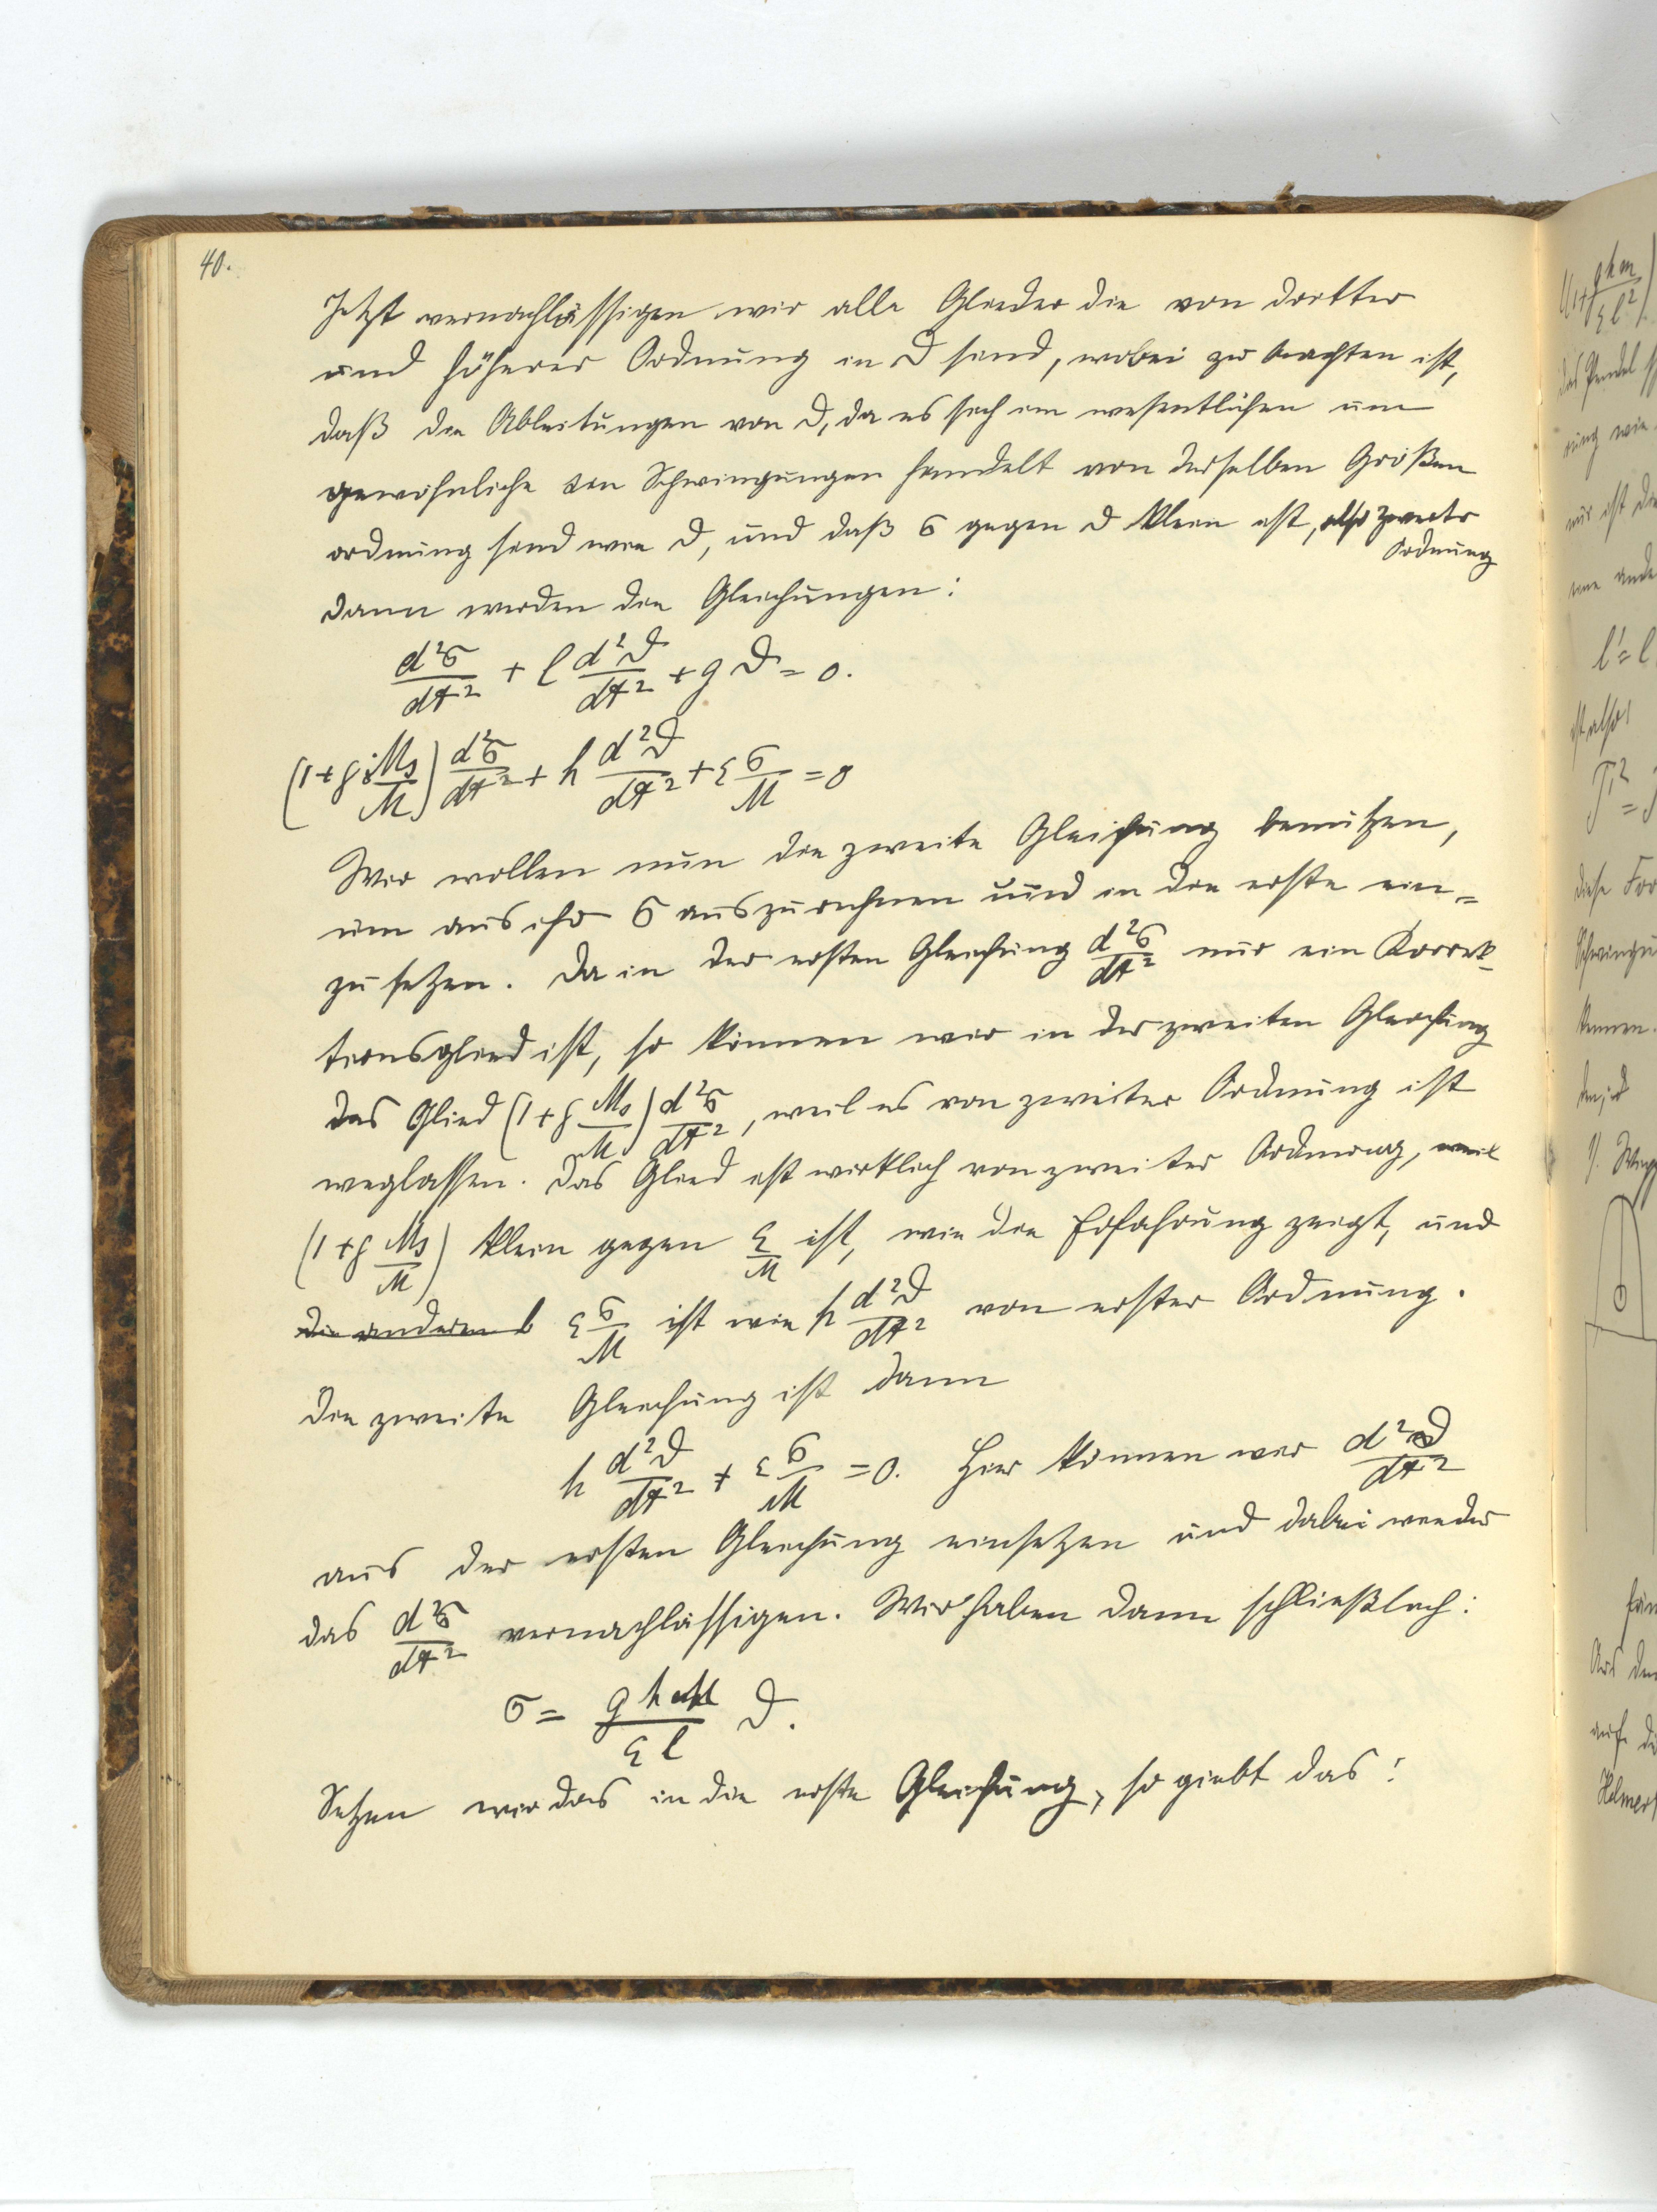 40.
Jetzt vernachlässigen wir alle Glieder die von dritter
und höherer Ordnung in ϑ sind, wobei zu beachten ist,
daß die Ableitungen von ϑ, da es sich im wesentlichen um
gewöhnliche Schwingungen handelt von derselben Größen
ordnung sind wie ϑ, und daß σ gegen ϑ klein ist, also zweiter
Ordnung
Dann werden die Gleichungen:
d²σ/dt² + l d²ϑ/dt² + g ϑ = 0.
(1+ρ Ms/M) d²σ/dt² + h d²ϑ/dt² + ε σ/M = 0
Wir wollen nun die zweite Gleichung benutzen,
um aus ihr σ auszurechnen und in die erste ein=
zusetzen. Da in der ersten Gleichung d²σ/dt² nur ein Korrek-
tionsglied ist, so können wir in der zweiten Gleichung
das Glied (1+ρ Ms/M) d²σ/dt², weil es von zweiter Ordnung ist
weglassen. Das Glied ist wirklich von zweiter Ordnung, weil
(1+ρ Ms/M) klein gegen ε/M ist, wie die Erfahrung zeigt, und
die anderen ε σ/M ist wie h d²ϑ/dt² von erster Ordnung.
Die zweite Gleichung ist dann
h d²ϑ/dt² + ε σ/M = 0. Hier können wir d²ϑ/dt²
aus der ersten Gleichung einsetzen und dabei wieder
das d²σ/dt² vernachlässigen. Wir haben dann schließlich:
σ = g h M/ε l ϑ.
Setzen wir das in die erste Gleichung, so giebt das:
(1+ghm/εl²)
das Pendel
ung wie
nur ist die
eine ande
l' = l
ist also:
T² =
diese For
Schwingu
kennen.
1). Wipp
Aus den
auf di
Helmert